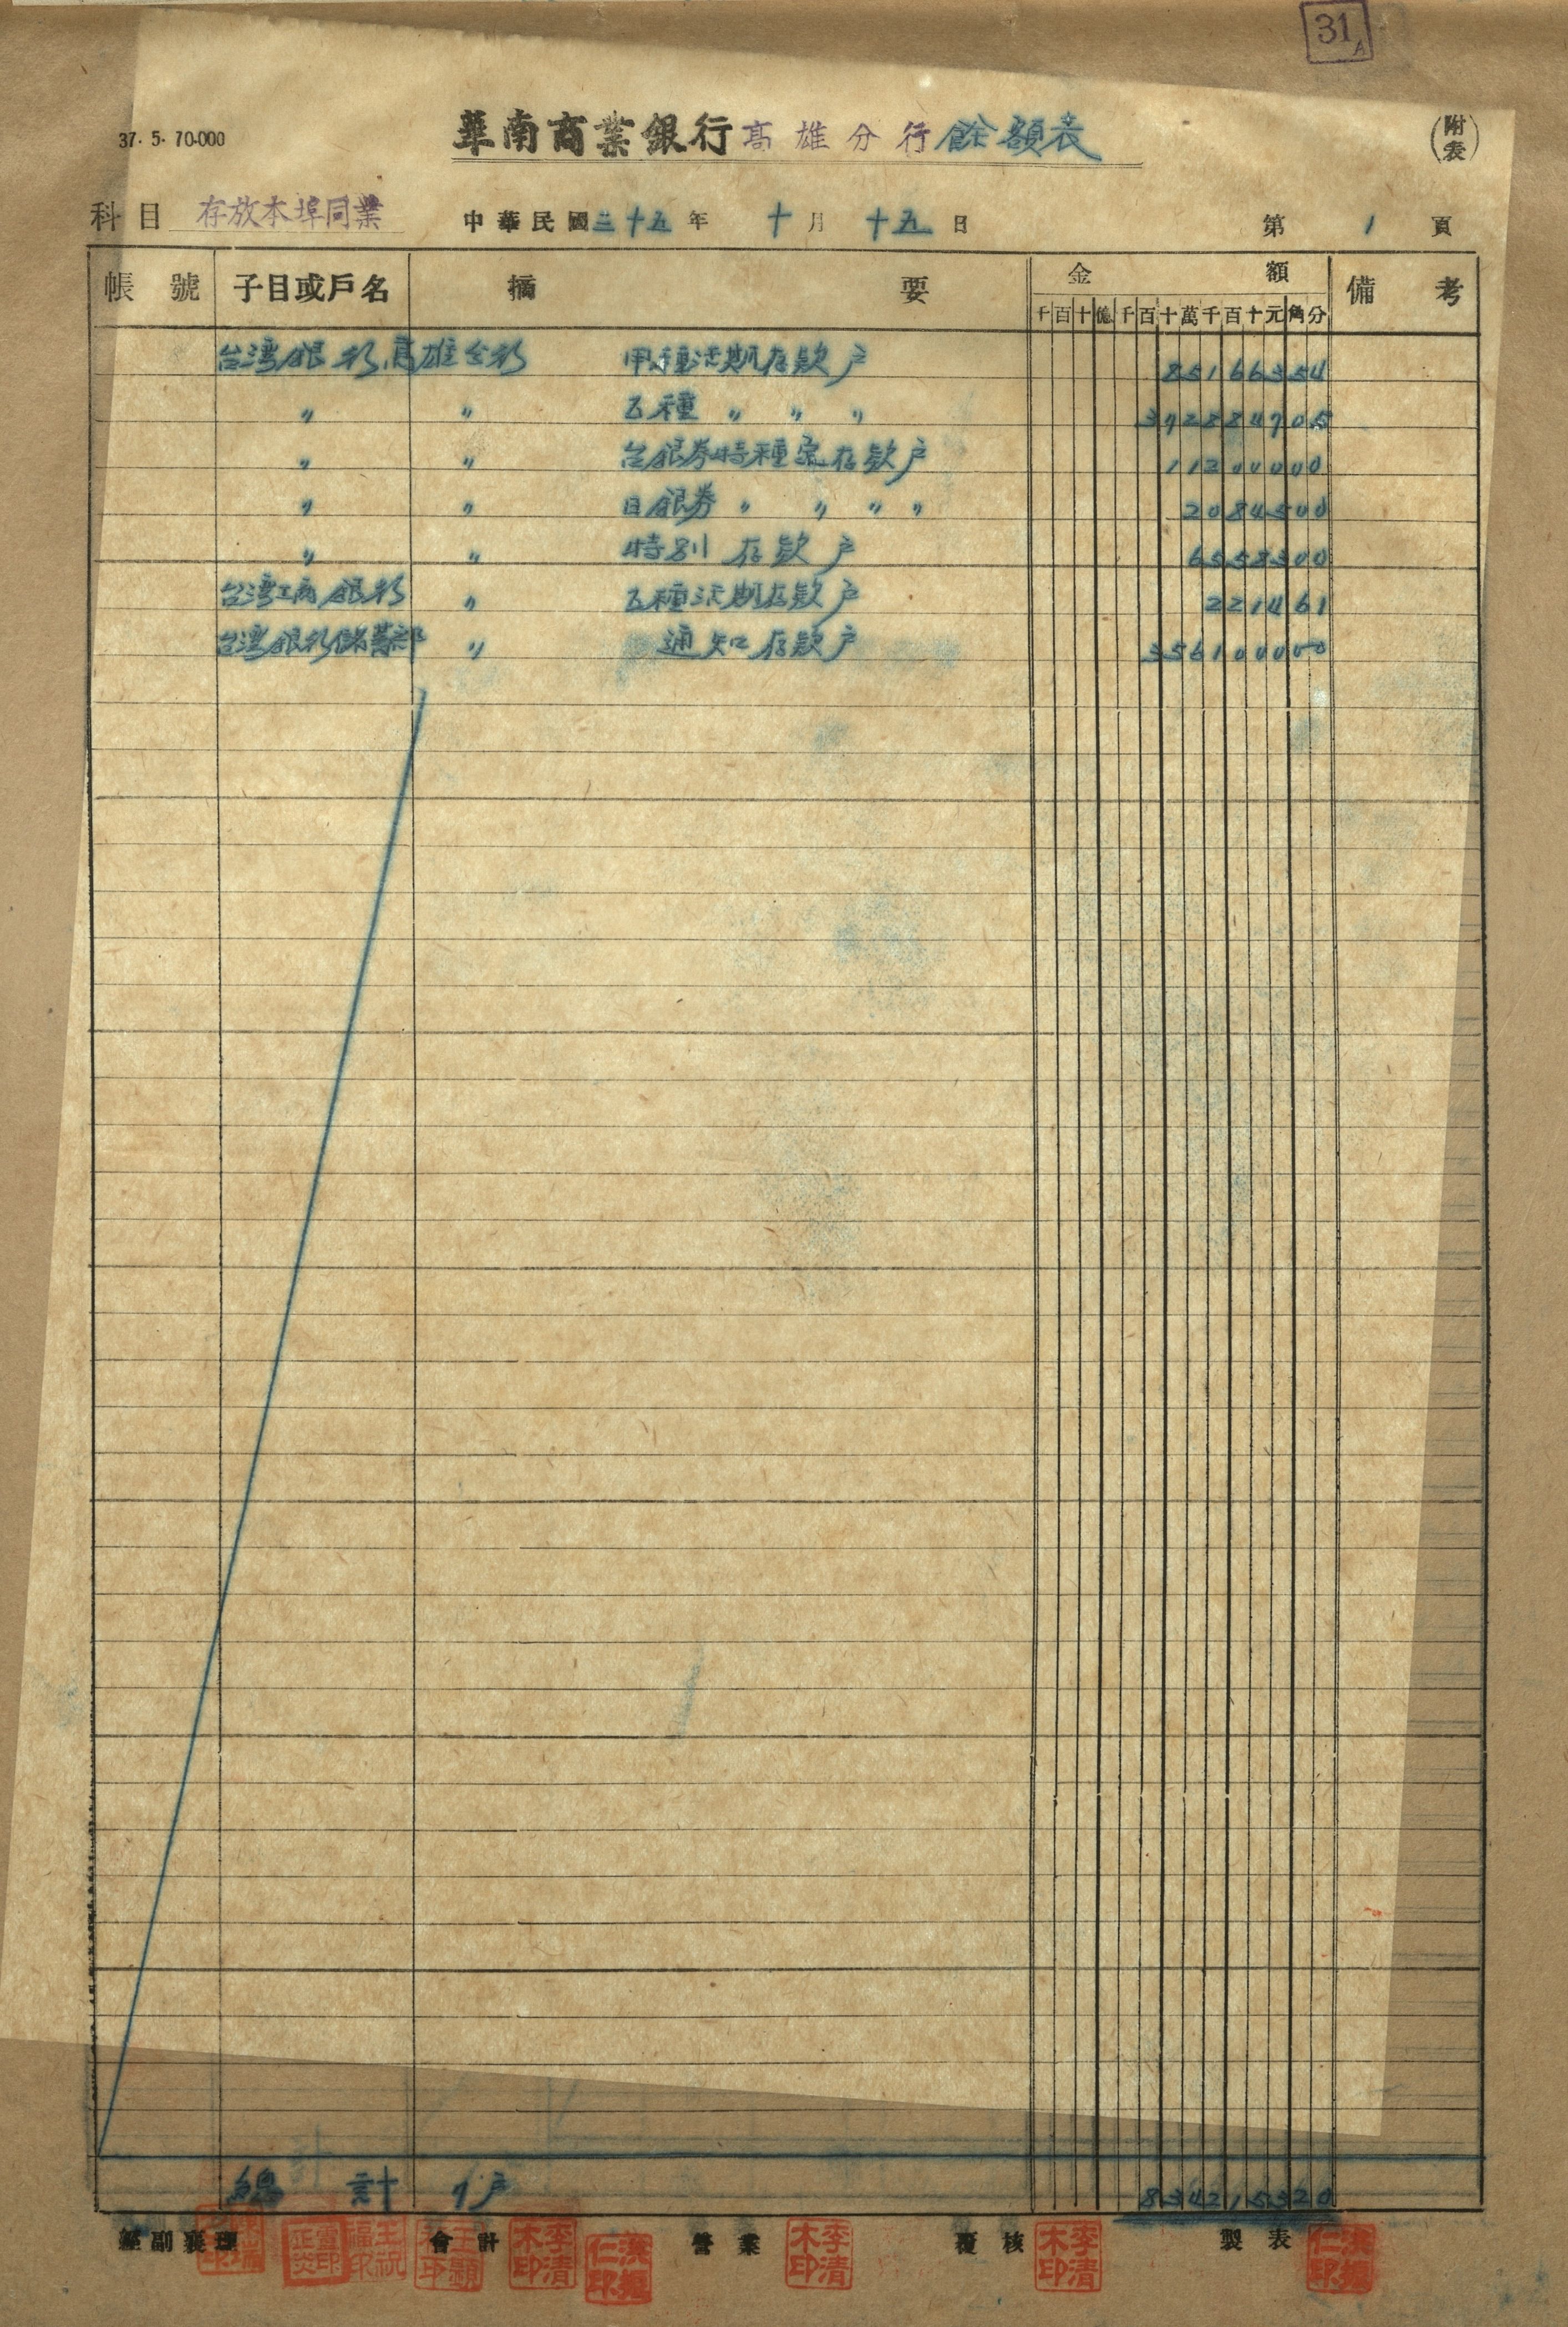 31A
37. 5. 70.000
華南商業銀行高雄分行餘額表
(附表)
科目 存放本埠同業 中華民國三十五年 十月 十五日 第 1 頁
帳號 子目或戶名 摘要 金額 備考
千百十億千百十萬千百十元角分
台湾銀行高雄分行 甲種活期存款戶 85166354
〃 〃 乙種 〃 〃 〃 372884705
〃 〃 台銀券特種定存款戶 11200000
〃 〃 日銀券 〃 〃 〃 〃 2084500
〃 〃 特別存款戶 6558300
台湾工商銀行 〃 乙種活期存款戶 221461
台湾銀行儲蓄部 〃 通知存款戶 356100000
總計 7戶 834215320
經副襄理 會計 營業 覆核 製表
李清木印 李清木印 李清木印